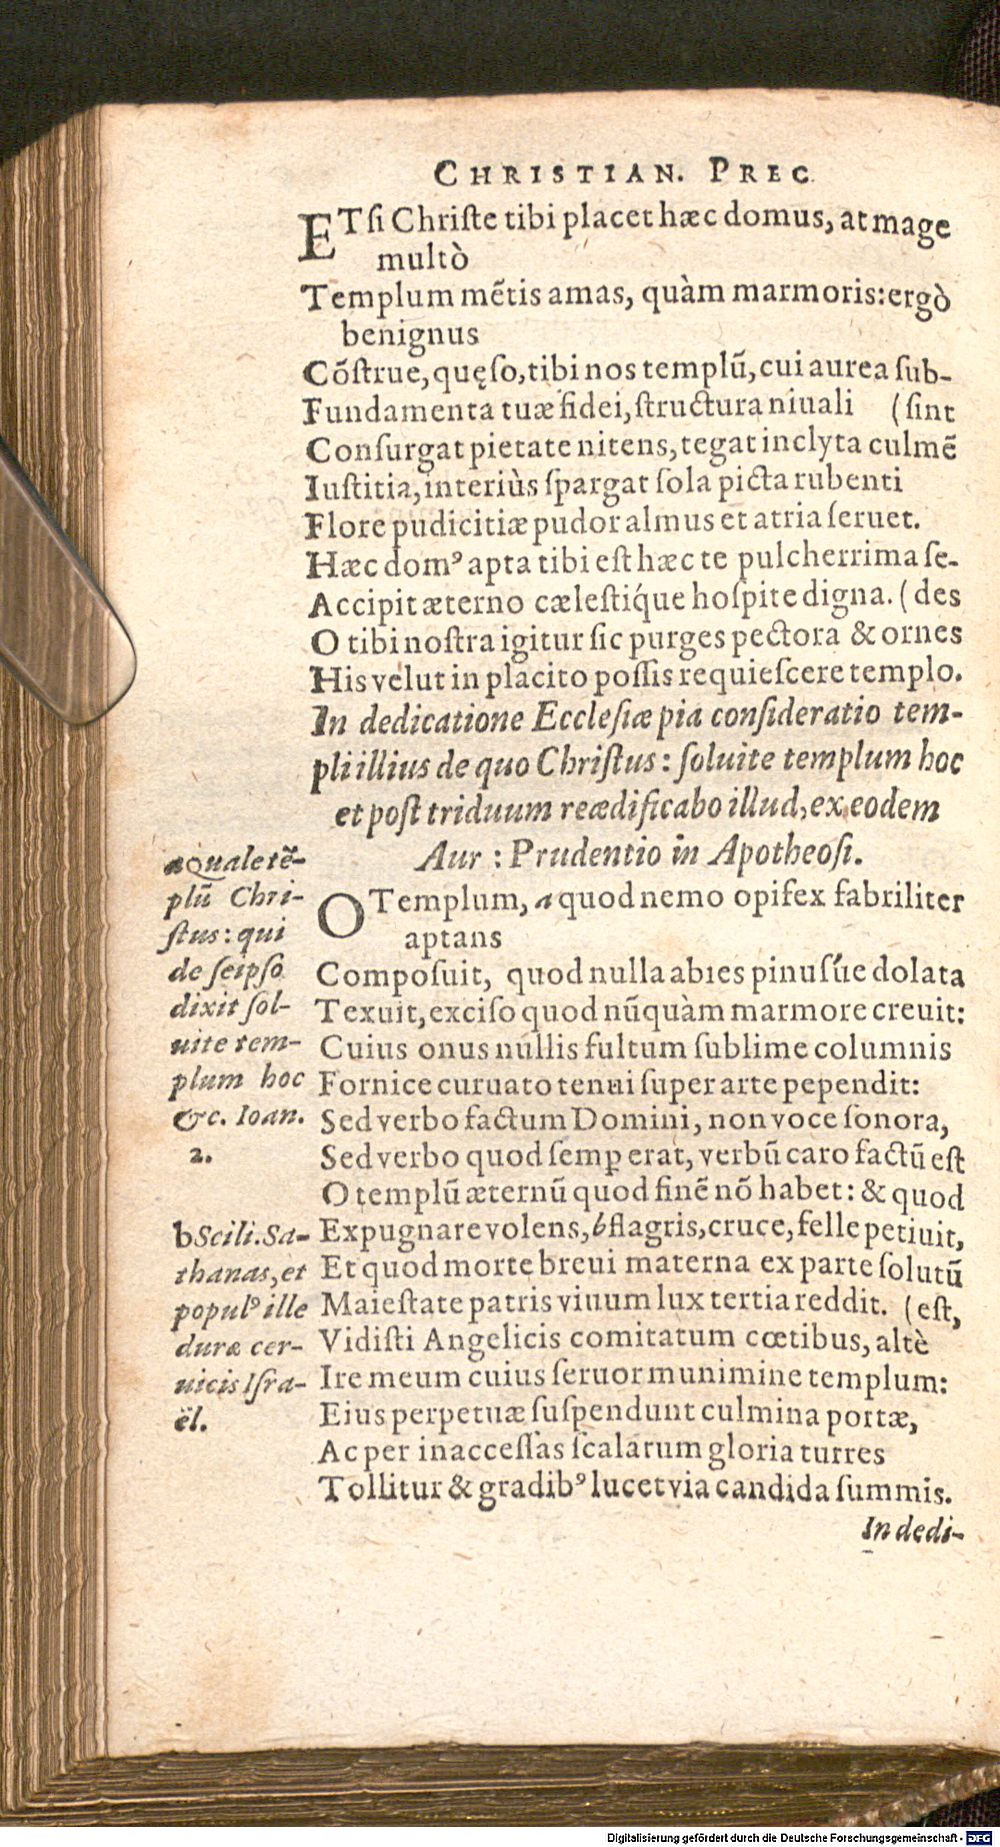 CHRISTIAN. PREC
ETſi Chriſte tibi placet hæc domus, at mage
multò
Templum mẽtis amas, quàm marmoris: ergò
benignus
Cõſtrue, quęſo, tibi nos templũ, cui aurea ſub-
Fundamenta tuæ fidei, ſtructura niuali (ſint
Conſurgat pietate nitens, tegat inclyta culmẽ
Iuſtitia, interiùs ſpargat ſola picta rubenti
Flore pudicitiæ pudor almus et atria ſeruet.
Hæc domꝰ apta tibi eſt hæc te pulcherrima ſe-
Accipit æterno cæleſtiq́ue hoſpite digna. (des
O tibi noſtra igitur ſic purges pectora & ornes
His velut in placito poſſis requieſcere templo.
In dedicatione Eccleſiæ pia conſideratio tem-
pli illius de quo Chriſtus: ſoluite templum hoc
et poſt triduum reædificabo illud, ex eodem
Aur: Prudentio in Apotheoſi.
OTemplum, a quod nemo opifex fabriliter
aptans
Compoſuit, quod nulla abies pinuſúe dolata
Texuit, exciſo quod nũquàm marmore creuit:
Cuius onus nullis fultum ſublime columnis
Fornice curuato tenui ſuper arte pependit:
Sed verbo factum Domini, non voce ſonora,
Sed verbo quod ſemꝑ erat, verbũ caro factũ eſt
O templũ æternũ quod finẽ nõ habet: & quod
Expugnare volens, b flagris, cruce, felle petiuit,
Et quod morte breui materna ex parte ſolutũ
Maieſtate patris viuum lux tertia reddit. (eſt,
Vidiſti Angelicis comitatum cœtibus, altè
Ire meum cuius ſeruor munimine templum:
Eius perpetuæ ſuſpendunt culmina portæ,
Ac per inacceſſas ſcalarum gloria turres
Tollitur & gradibꝰ lucet via candida ſummis.
In dedi-
a Quale tẽ-
plũ Chri-
ſtus: qui
de ſeipſo
dixit ſol-
uite tem-
plum hoc
&c. Ioan.
2.
b Scili. Sa-
thanas, et
populꝰ ille
duræ cer-
uicis Iſra-
ël.
Digitalisierung gefördert durch die Deutsche Forschungsgemeinschaft - DFG